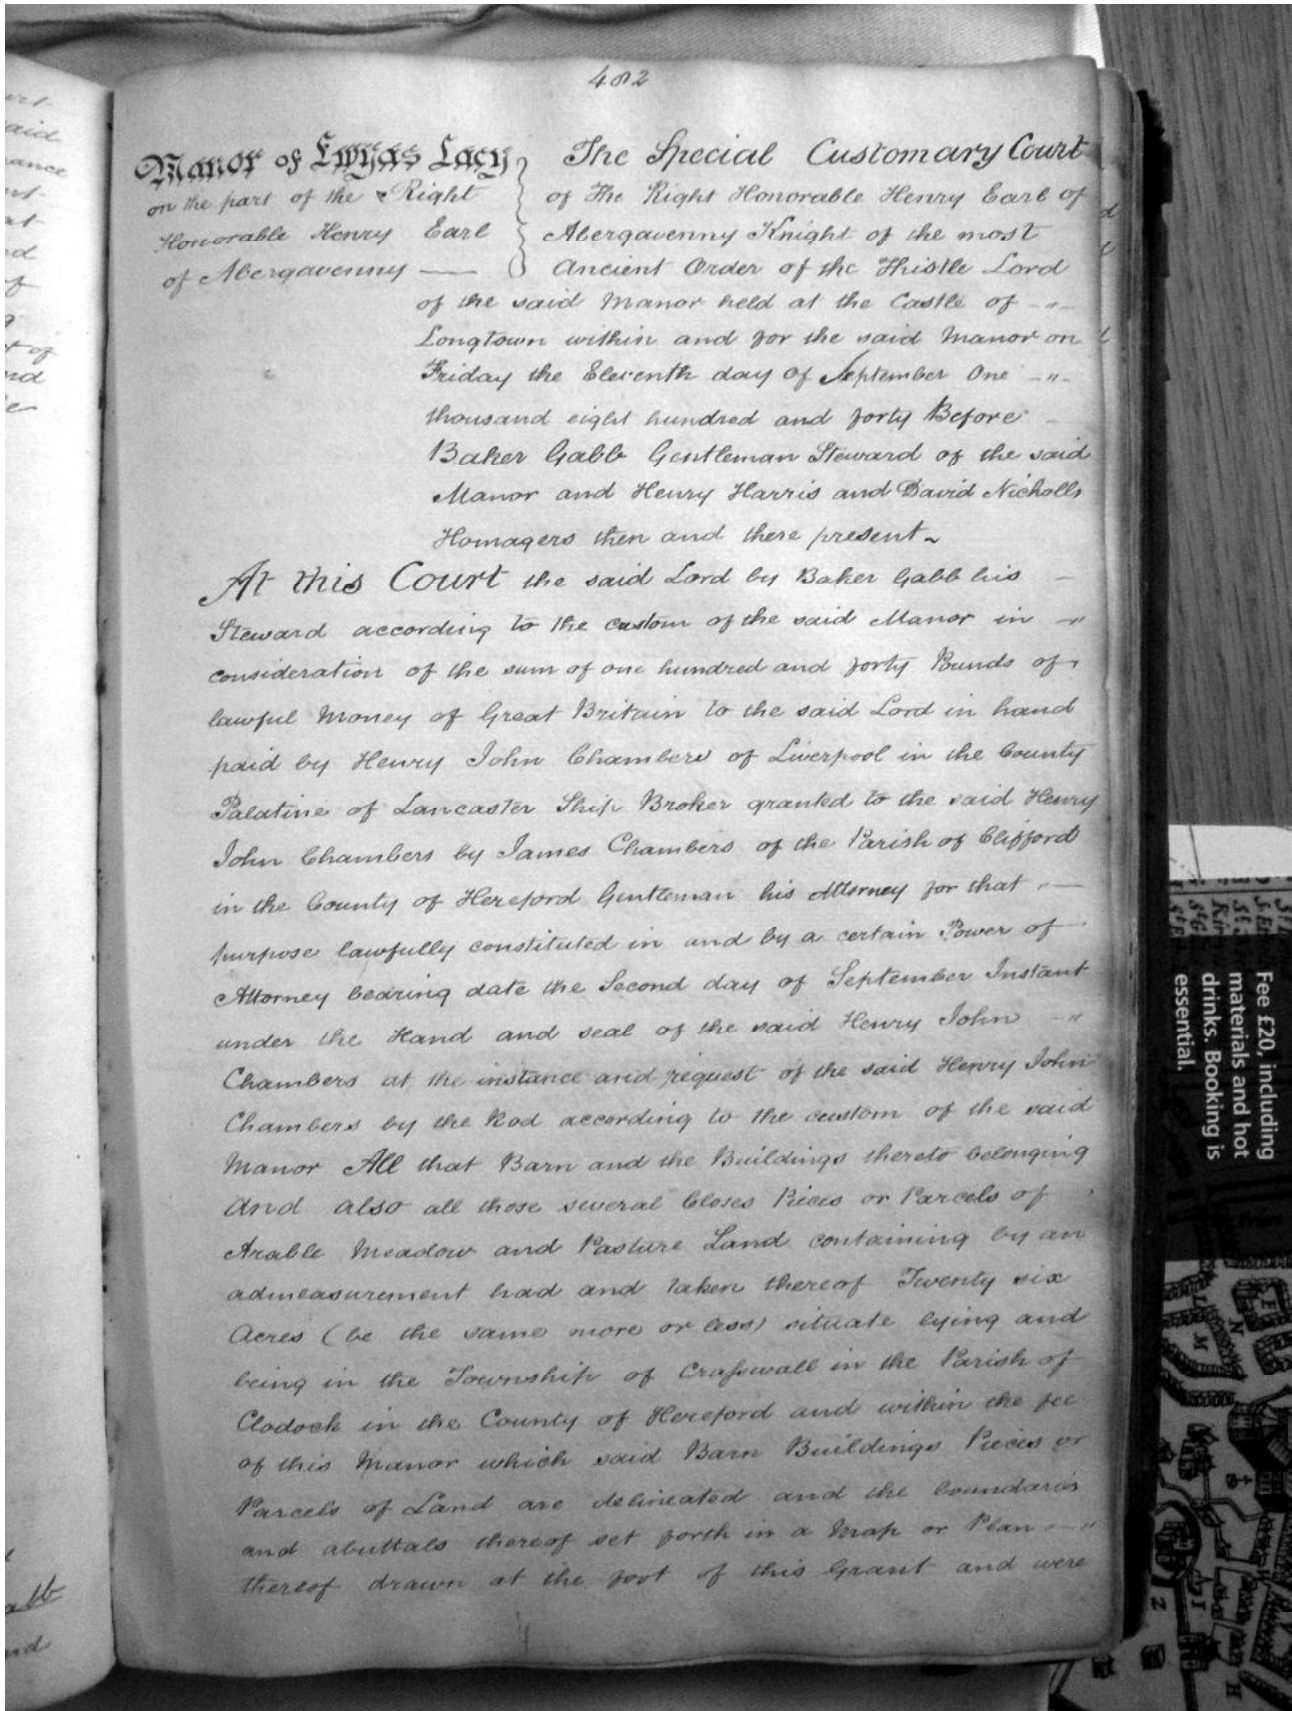 482
Manor of Ewyas Lacy
on the part of the Right
Honorable Henry Earl
of Abergavenny
The Special Customary Court
of The Right Honorable Henry Earl of
Abergavenny Knight of the most
Ancient Order of the Thistle Lord
of the said Manor held at the Castle of
Longtown within and for the said Manor on
Friday the Eleventh day of September One
thousand eight hundred and forty Before
Baker Gabb Gentleman Steward of the said
Manor and Henry Harris and David Nicholls
Homagers then and there present
At this Court the said Lord by Baker Gabb his
Steward according to the custom of the said Manor in
consideration of the sum of one hundred and forty Pounds of
lawful Money of Great Britain to the said Lord in hand
paid by Henry John Chambers of Liverpool in the County
Palatine of Lancaster Ship Broker granted to the said Henry
John Chambers by James Chambers of the Parish of Clifford
in the County of Hereford Gentleman his Attorney for that
purpose lawfully constituted in and by a certain Power of
Attorney bearing date the Second day of September Instant
under the Hand and seal of the said Henry John
Chambers at the instance and request of the said Henry John
Chambers by the Rod according to the custom of the said
Manor All that Barn and the Buildings thereto belonging
And also all those several Closes Pieces or Parcels of
Arable Meadow and Pasture Land containing by an
admeasurement had and taken thereof Twenty six
Acres (be the same more or less) situate lying and
being in the Township of Crasswall in the Parish of
Clodock in the County of Hereford and within the fee
of this Manor which said Barn Buildings Pieces or
Parcels of Land are delineated and the boundaries
and abuttals thereof set forth in a Map or Plan
thereof drawn at the foot of this Grant and were
Fee £20, including
materials and hot
drinks. Booking is
essential.